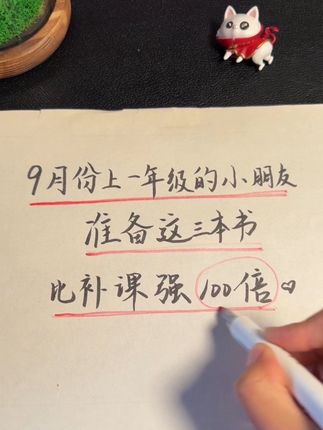 9月份上一年级的小朋友
准备这三本书
比补课强100倍